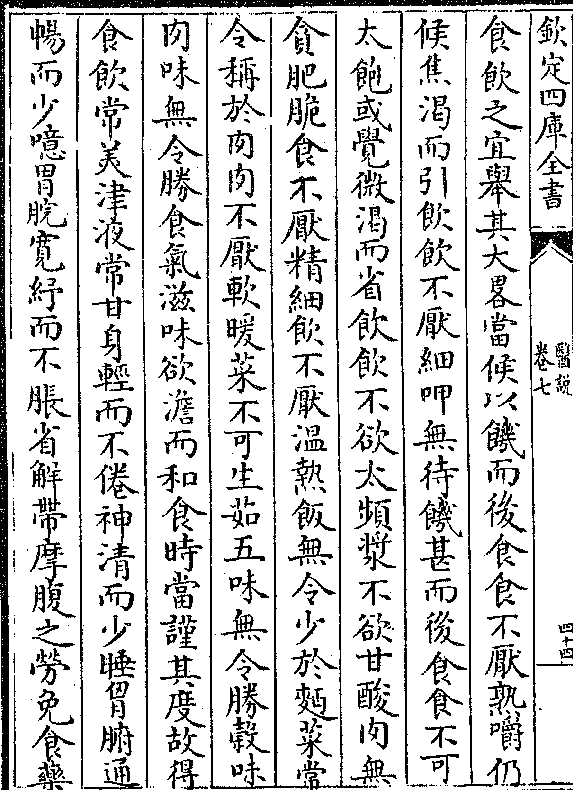 欽定四庫全書
醫説
卷七
四十四
食飲之宜舉其大畧當候以饑而後食食不厭熟嚼仍
候焦渴而引飲飲不厭細呷無待饑甚而後食食不可
太飽或覺微渴而省飲飲不欲太頻漿不欲甘酸肉無
貪肥脆食不厭精細飲不厭溫熱飯無令少於麵菜常
令稱於肉肉不厭軟暖菜不可生茹五味無令勝穀味
肉味無令勝食氣滋味欲澹而和食時當謹其度故得
食飲常美津液常甘身輕而不倦神清而少睡胃腑通
暢而少噫胃脘寛紓而不脹省解帶摩腹之勞免食藥